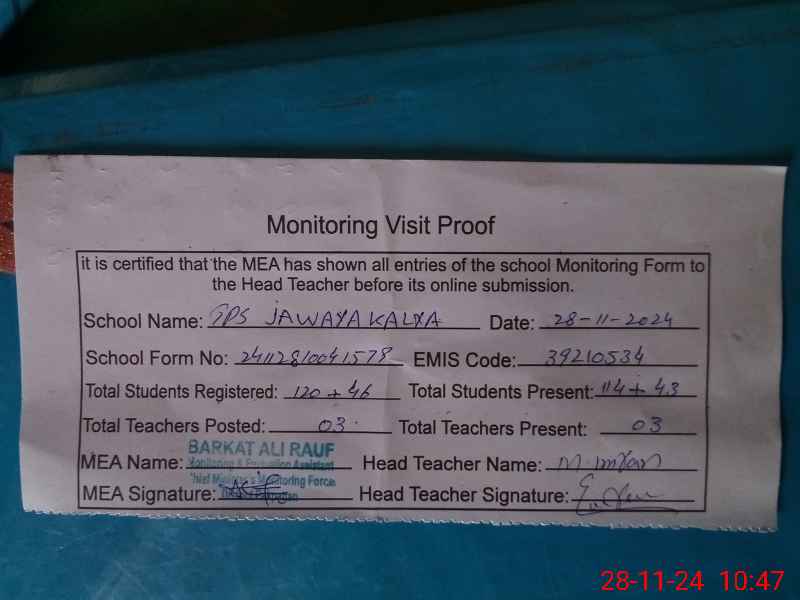 Monitoring Visit Proof
it is certified that the MEA has shown all entries of the school Monitoring Form to
the Head Teacher before its online submission.
School Name: GPS JAWAYA KALYA Date: 28-11-2024
School Form No: 24112810041578 EMIS Code: 39210534
Total Students Registered: 120 + 46 Total Students Present: 114 + 43
Total Teachers Posted: 03 Total Teachers Present: 03
BARKAT ALI RAUF
MEA Name: Monitoring & Evaluation Assistant Head Teacher Name: M.
Chief Minister's Monitoring Force
MEA Signature: Head Teacher Signature:
28-11-24 10:47